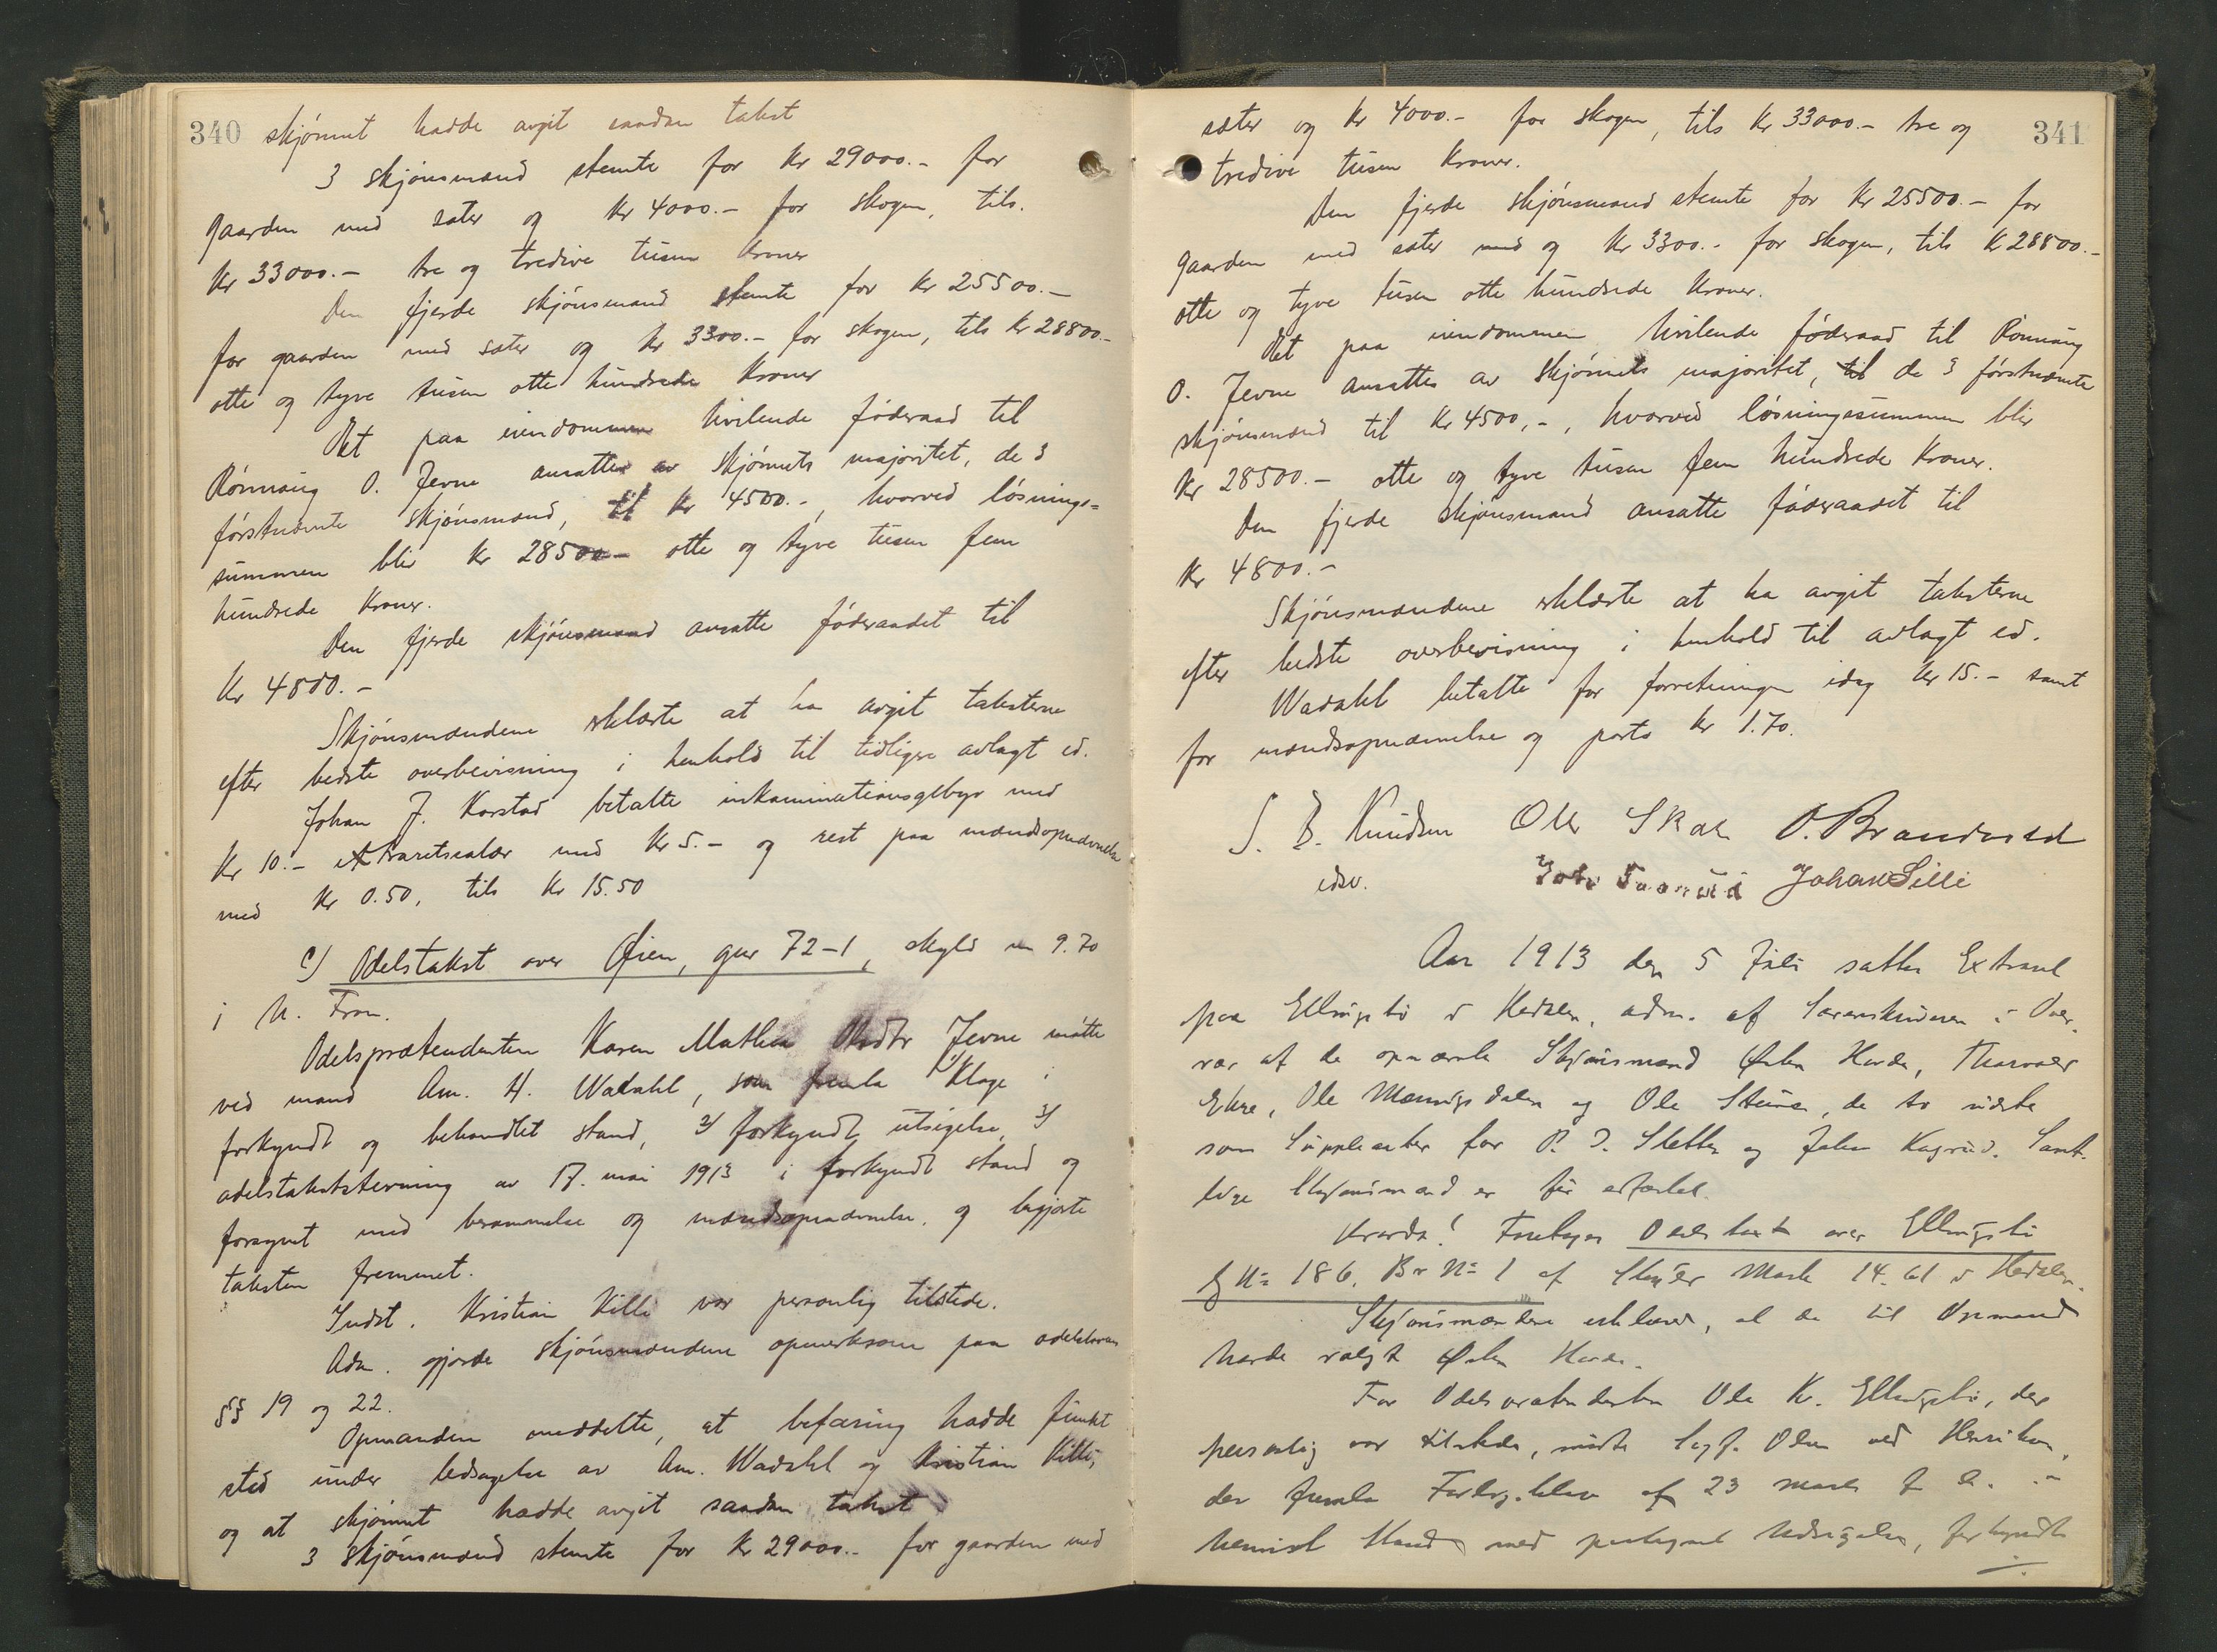 340
skjønnet hadde avgit saadan takst
3 skjønsmænd stemte for Kr 29000.- for
gaarden med sæter og Kr 4000.- for skogen, tils.
Kr 33000.- tre og tredive tusen kroner
Den fjerde skjønsmand stemte for Kr 25500.-
for gaarden med sæter og Kr 3300.- for skogen, tils Kr 28800.-
otte og tyve tusen otte hundrede Kroner
Det paa eiendommen hvilende føderaad til
Rønnaug O. Jevne ansattes av skjønnets majoritet, de 3
førstnævnte skjønsmænd, til Kr 4500.-, hvorved løsnings=
summen blir Kr 28500.- otte og tyve tusen fem
hundrede Kroner.
Den fjerde skjønsmand ansatte føderaadet til
Kr 4800.-
Skjønsmændene erklærte at ha avgit taksterne
efter bedste overbevisning i henhold til tidligere avlagt ed.
Johan J. Korstad betalte inkaminationsgebyr med
Kr 10.- extraretsalær med Kr 5.- og rest paa mændsopnævnelse
med Kr 0.50, tils Kr 15.50
c) Odelstakst over Øien, gnr 72-1, skyld m 9.70
i N. Fron.
Odelsprætendenten Karen Mathea Olsdtr Jevne møtte
ved mand Am. H. Wadahl, som fremla 1) Klage i
forkyndt og behandlet stand, 2) forkyndt utsigelse, 3)
odelstakststevning av 17. mai 1913 i forkyndt stand og
forsynet med berammelse og mændsopnævnelse, og begjærte
taksten fremmet.
Indst. Kristian Killi var personlig tilstede.
Adm. gjorde skjønsmændene opmerksom paa odelsloven
§§ 19 og 22.
Opmanden meddelte, at befaring hadde funnet
sted under ledsagelse av Am. Wadahl og Kristian Killi,
og at skjønnet hadde avgit saadan takst
3 skjønsmænd stemte for Kr 29000.- for gaarden med
341
sæter og Kr 4000.- for skogen, tils Kr 33000.- tre og
tredive tusen Kroner.
Den fjerde skjønsmand stemte for Kr 25500.- for
gaarden med sæter med og Kr 3300.- for skogen, tils Kr 28800.-
otte og tyve tusen otte hundrede Kroner.
Det paa eiendommen hvilende føderaad til Rønnaug
O. Jevne ansattes av skjønnets majoritet, til de 3 førstnævnte
skjønsmænd til Kr 4500,-, hvorved løsningssummen blir
Kr 28500.- otte og tyve tusen fem hundrede Kroner.
Den fjerde skjønsmand ansatte føderaadet til
Kr 4800.-
Skjønsmændene erklærte at ha avgit taksterne
efter bedste overbevisning i henhold til avlagt ed.
Wadahl betalte for forretningen idag Kr 15.- samt
for mændsopnævnelse og porto Kr 1.70.
S. B. Knudsen Ole Skar O. Brandvold
edsv. Johan Lilli
Aar 1913 den 5 Juli sattes Extraret
paa Ellingsbø i Hedalen, adm. af Sorenskriveren i Over-
vær af de opnævnte Skjønsmænd Harde, Thorvald
Ekre, Ole og Ole, de to sidste
som Suppleanter for P. I. Sletten og John Kagrud. Samt-
lige Skjønsmænd er før edfæstet.
Hvorda! Foretages Odelstaxt over Ellingsbø
G Nº 186, Br Nº 1 af Skyld Mark 14.61 i Hedalen.
Skjønsmændene erklærer, at de til Opmand
havde valgt Harde.
For Odelsprætendenten Ole K. Ellingsbø, der
personlig var tilstede, mødte Sagf. Olsen ved Henriksen,
der fremla af 23 marts
Stand med Udsigelse, forkyndt